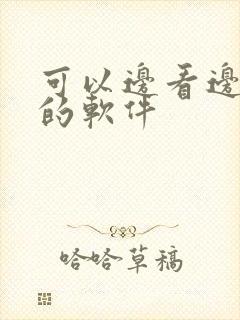 可以邊看邊
的軟件
哈哈草稿